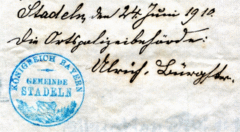 Stadeln, den 24. Juni 1910
Die Ortspolizeibehörde:
Ulrich, Bürgstr.
KÖNIGREICH BAYERN
GEMEINDE
STADELN